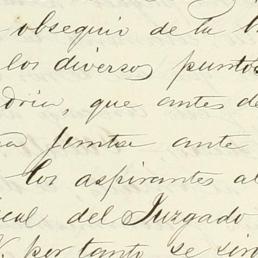 obsequio de la
los diversos puntos
oria, que antes de
ante
los aspirantes al
cal del Juzgado
por tanto se sir